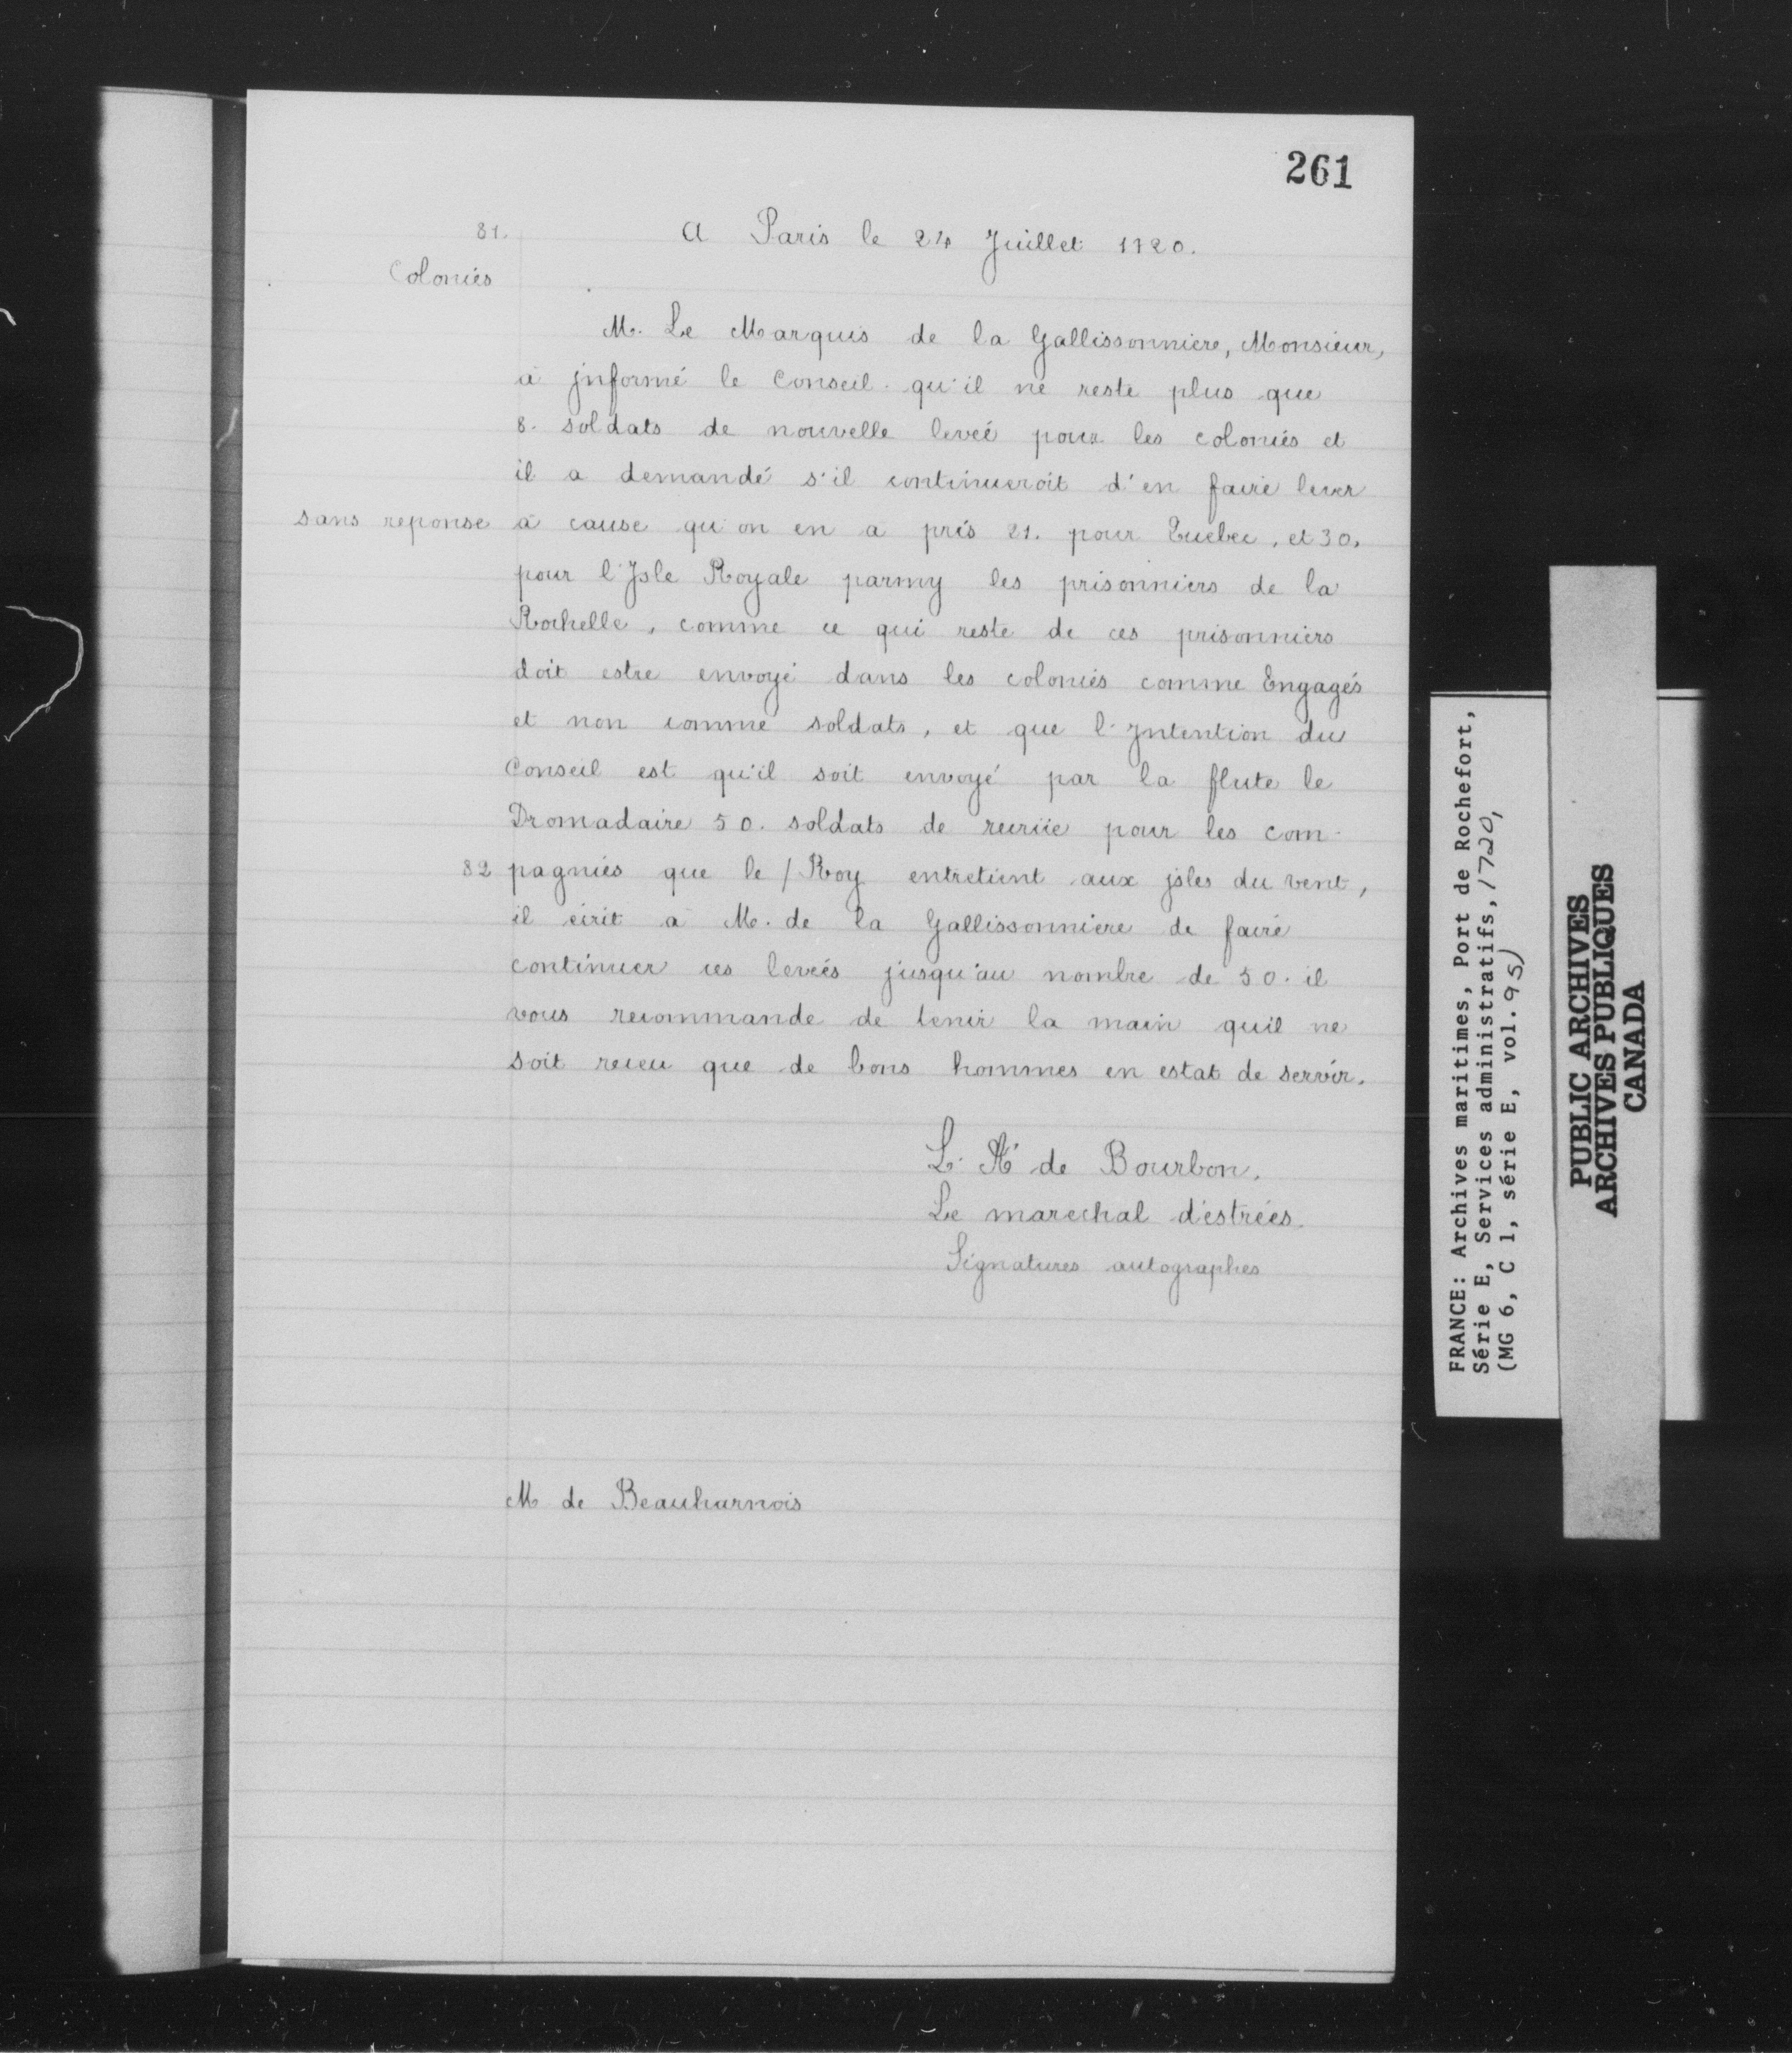 261
81.
A Paris le 24 Juillet 1720.
Colonies
M. Le Marquis de la Gallissonniere, Monsieur,
à jnformé le Conseil qu'il ne reste plus que
8. soldats de nouvelle leveé pour les colonies et
il a demandé s'il continueroit d'en faire lever
sans reponse à cause qu'on en a pris 21. pour Quebec, et 30.
pour l'Jsle Royale parmy les prisonniers de la
Rochelle, comme ce qui reste de ces prisonniers
doit estre envoyé dans les colonies comme Engagés
et non comme soldats, et que l'Jntention du
Conseil est qu'il soit envoyé par la flute le
Dromadaire 50. soldats de recrüe pour les com-
82 pagnies que le / Roy entretient aux jsles du vent,
il ecrit a M. de la Gallissonniere de faire
continuer ces leveés jusqu'au nombre de 50. il
vous recommande de tenir la main quil ne
soit receu que de bons hommes en estat de servir.
L. A. de Bourbon.
Le marechal d'estrées.
Signatures autographes
M de Beauharnois
FRANCE: Archives maritimes, Port de Rochefort,
Série E, Services administratifs, 1720,
(MG 6, C 1, série E, vol. 95)
PUBLIC ARCHIVES
ARCHIVES PUBLIQUES
CANADA